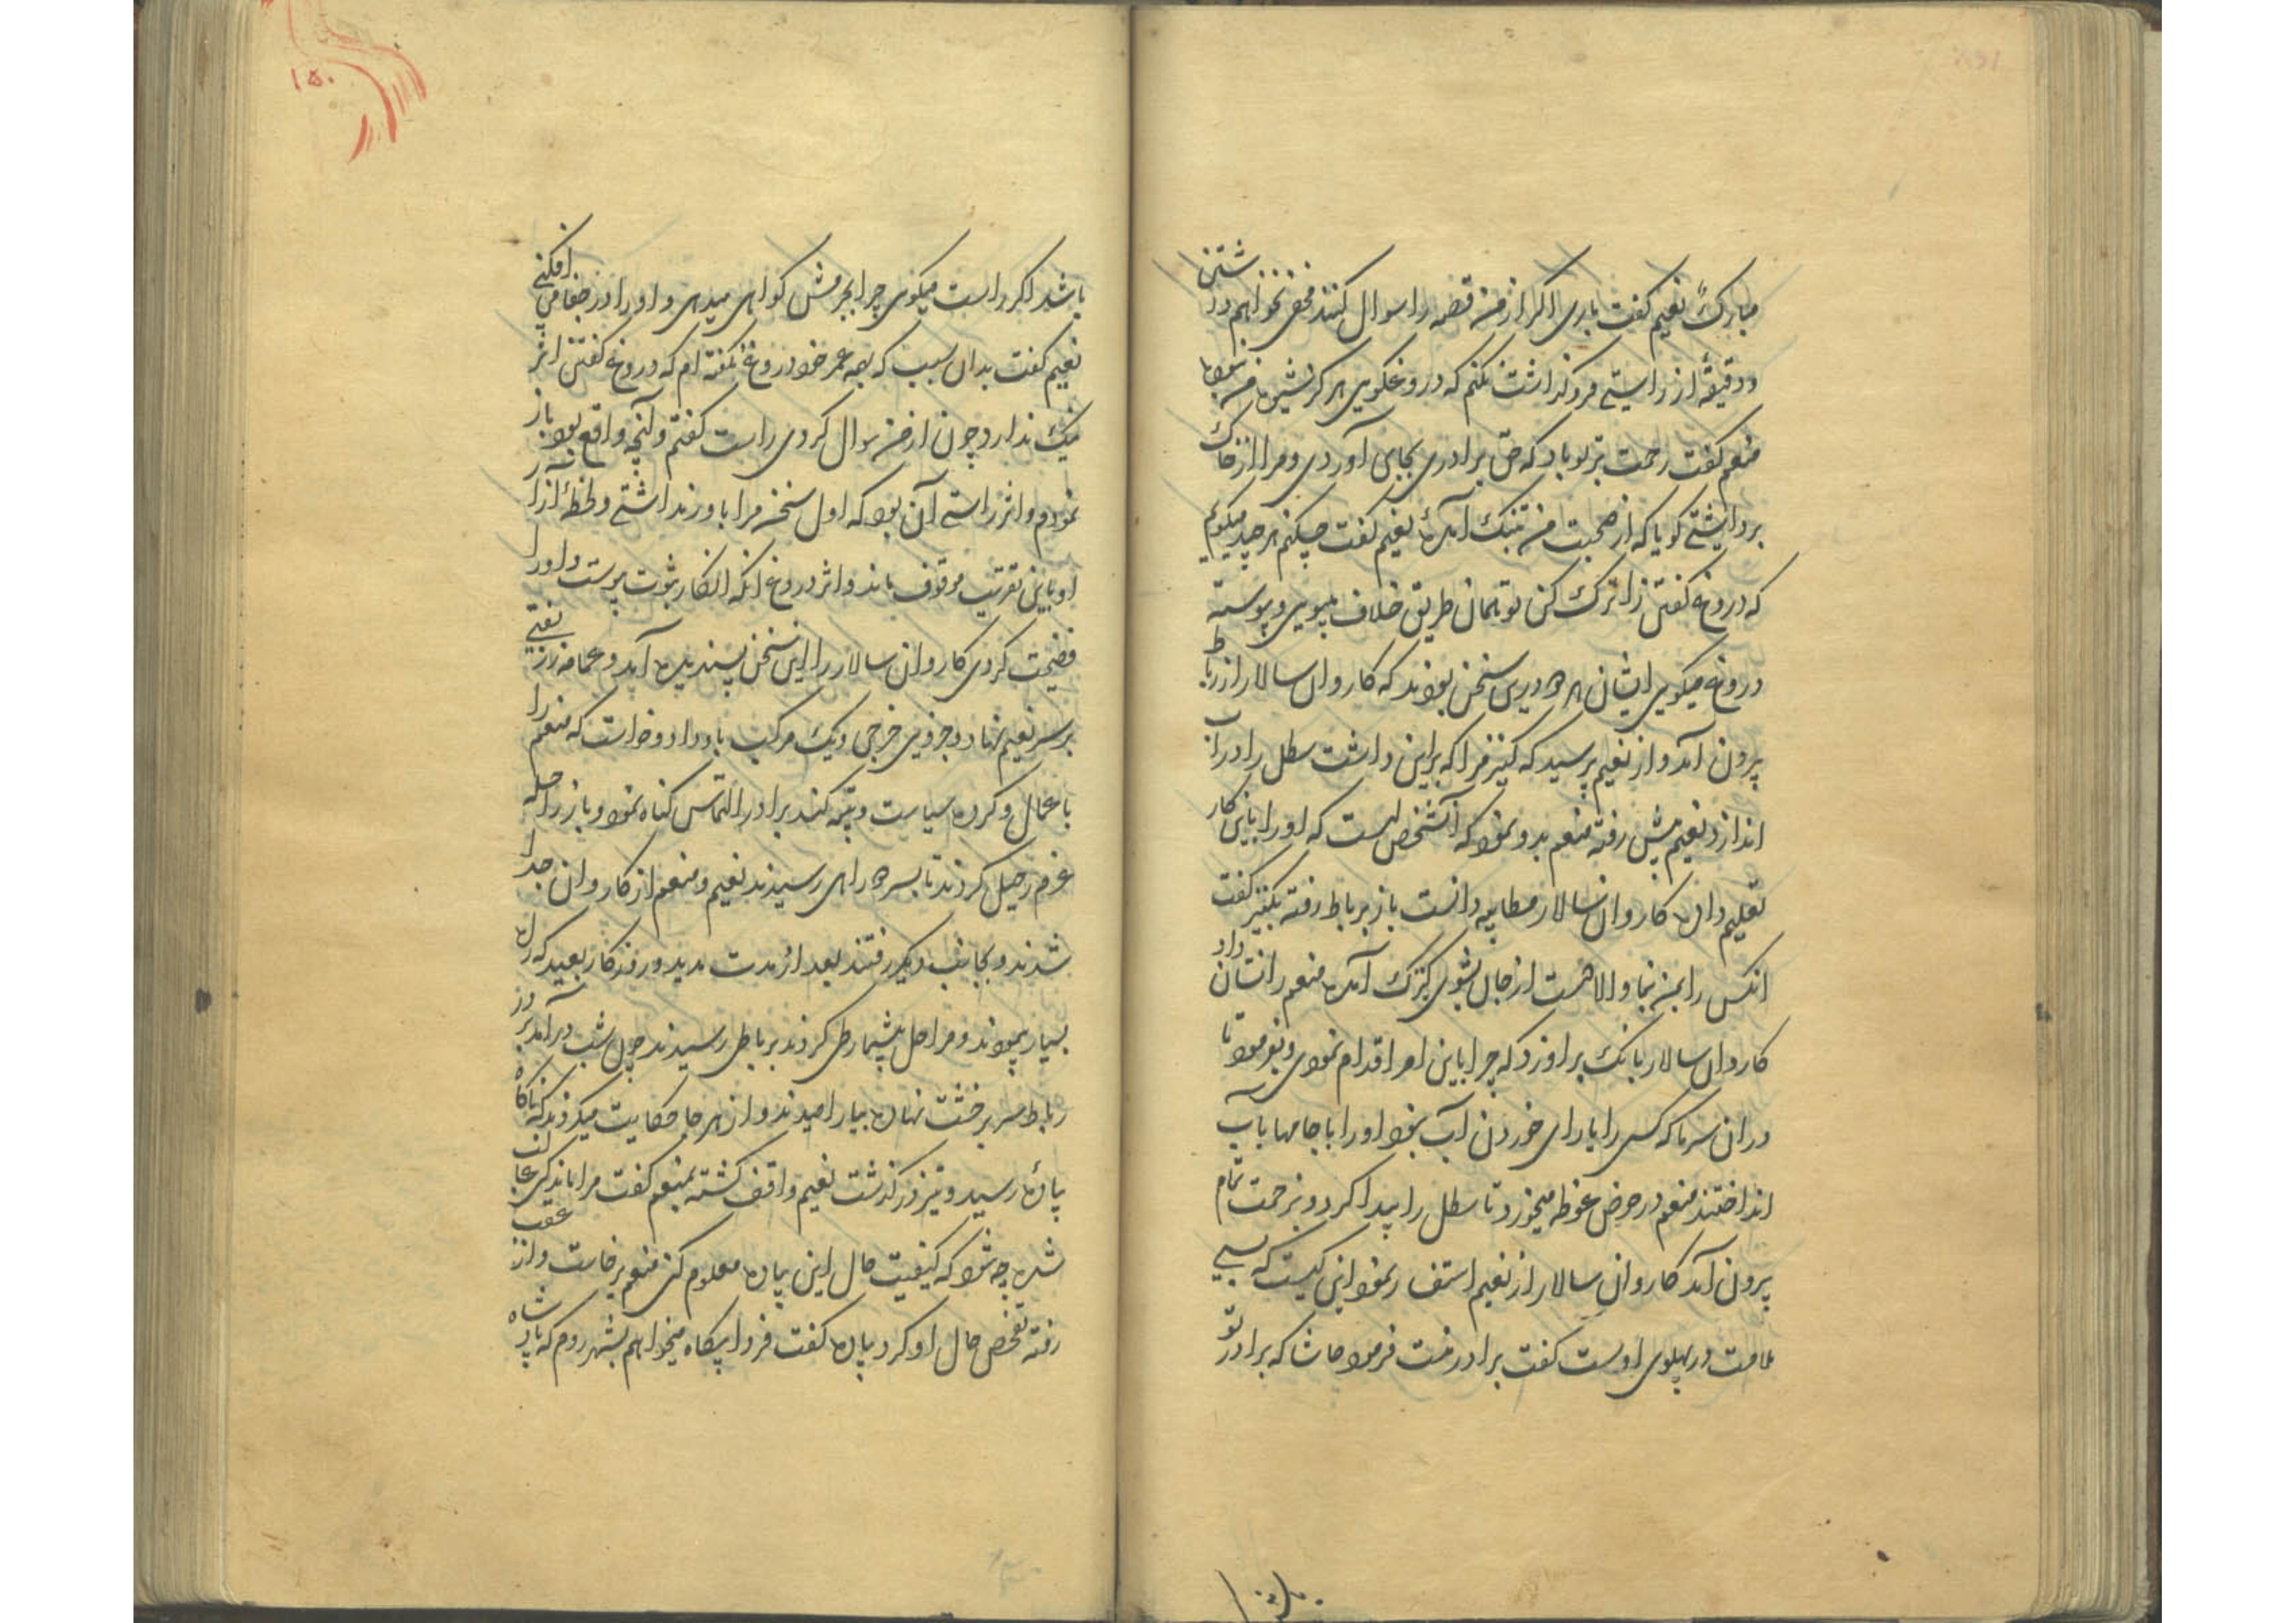 مبارک نعیم گفت باری اگر از من قصه را سوال کنند مخفی نخواهم داشتن
ودقیقهٔ از راستی فرو گذاشت نکنم که دروغگویی هرگز شیوهٔ من نبود
منعم گفت رحمت بر تو باد که حق برادری بجای آوردی و مرا از خاک
برداشتی گویا که از صحبت من بتنگ آمدهٔ نعیم گفت چکنم هر چند میگویم
که دروغ گفتن را ترک کن تو همان طریق خلاف میپویی و پیوسته
دروغ میگویی ایشان هر دو درین سخن بودند که کاروان سالار از رباط
بیرون آمد و از نعیم پرسید که کنیز مرا که براین داشت سطل را در آب
اندازد نعیم پیش رفته منعم بدو نمود که آنشخص است که او را باین کار
تعلیم داده کاروان سالار مطایبه دانست باز برباط رفته بکنیز گفت
انکس را بمن بنما والا همت از جان بشوی کنیزک آمده منعم را نشان داد
کاروان سالار بانگ بر اورد که چرا باین امر اقدام نمودی و بفرمود تا
دران سرما که کسی را یارای خوردن آب نبود او را با جامها بآب
انداختند منعم در حوض غوطه میخورد تا سطل را پیدا کرد و بزحمت تمام
بیرون آمد کاروان سالار از نعیم استفسار نمود این کیست که بسی
ملامت در پهلوی اوست گفت برادر منست فرمود حاشا که برادر تو
۱۵۰
باشد اگر راست میگوی چرا بجرمش گواهی میدهی و او را در جفا می افکنی
نعیم گفت بدان سبب که بهمه عمر خود دروغ نگفته ام که دروغ گفتن اثر
نیک ندارد چون از من سوال کردی راست گفتم و آنچه واقع بود باز
نمودم و اثر راستی آن بود که اول سخن مرا باور نداشتی و لحظهٔ آزار
او باین تقریب موقوف ماند و اثر دروغ انکه انکار بثبوت پیوست و او را
فضیحت کردی کاروان سالار را این سخن پسندیده آمد و عمامه زر بفتی
بر سر نعیم نهاد و جزویی خرجی و یک مرکب باو داد و خواست که منعم را
باعمال و کرده سیاست و تنبیه کند برادر التماس گناه نمود و باز راحله
عزم رحیل کردند تا بسر دو راهی رسیدند نعیم و منعم از کاروان جدا
شدند و بجانب دیگر رفتند بعد از مدت مدید و روزگار بعید که راه
بسیار پیمودند و مراحل بیشمار طی کردند برباطی رسیدند چون شب در آمد بر در
رباط سر بر خشت نهاده بیارامیدند و از هر جا حکایت میکردند که ناگاه
پیاده رسید و تیز در گذشت نعیم واقف گشته بمنعم گفت مرا ماندگی غالب
شده چه شود که کیفیت حال این پیاده معلوم کنی منعم برخاست و از عقب
رفته تفحص حال او کرد پیاده گفت فردا پگاه میخواهم بشهر روم که پادشاه